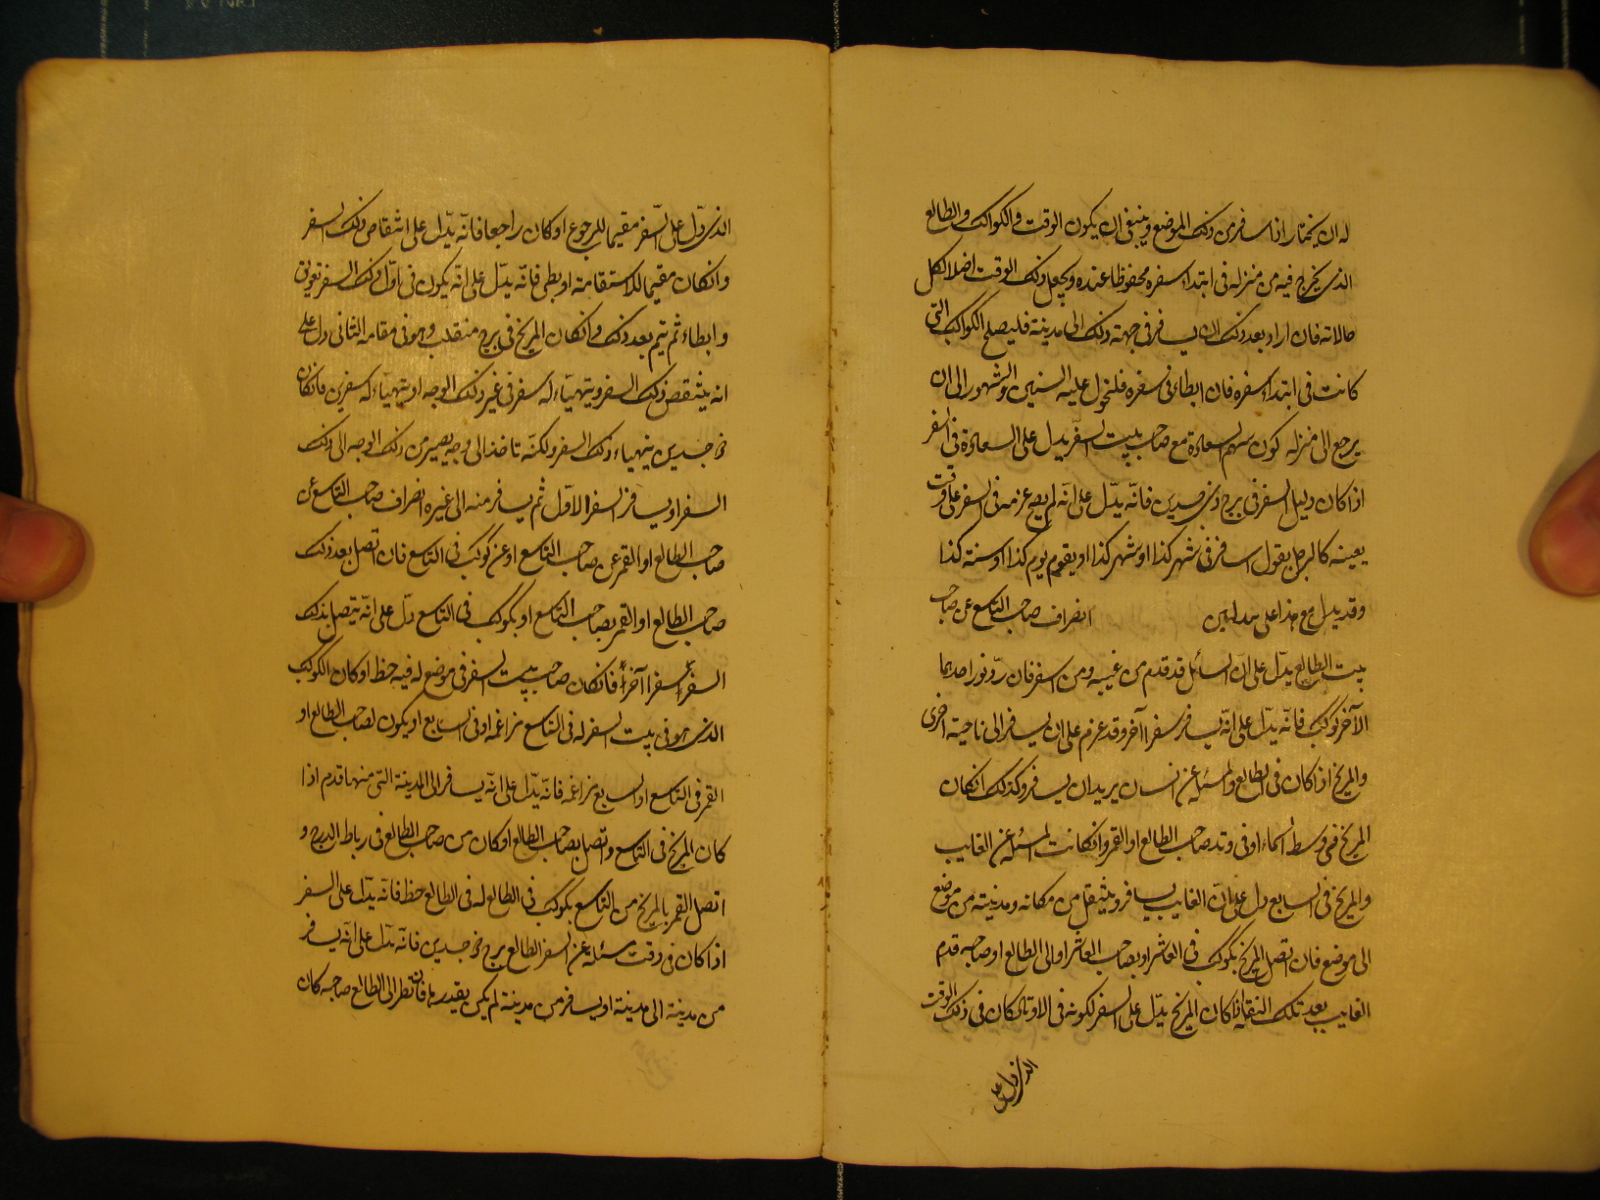 له ان يختار اذا سافر من ذلك الموضع وينبغى ان يكون الوقت والكواكب والطالع
الذى يخرج فيه من منزله فى ابتداء سفره محفوظا عنده ويجعل ذلك الوقت اصلا لكل
حالاته فان اراد بعد ذلك ان يسافر فى جهة ذلك الى مدينة فليصلح الكواكب التى
كانت فى ابتداء سفره فان ابطاء فى سفره فلتحول عليه السنين والشهور الى ان
يرجع الى منزله كون سهم السعادة مع صاحب بيت السفر يدل على السعادة فى السفر
اذا كان دليل السفر فى برج ذى جسدين فانه يدّل على انّه لم يصح عزمه فى السفر على وقت
بعينه كالرجل يقول اسافر فى شهر كذا او شهر كذا او يقوم يوم كذا او سنة كذا
وقد يدل مع هذا على انصراف صاحب التاسع عن صاحب
بيت الطالع يدّل على انّ السائل قد قدم من غيبه ومن سفر فان ردّ نور احدهما
الآخر كوكب فانّه يدّل على انّه يسافر سفرا آخر وقد عزم على ان يسافر الى ناحية اخرى
والمريخ اذا كان فى الطالع والمسئلة عن انسان يريد ان يسافر وكذلك انكان
المريخ فى وسط السماء او فى وتد صاحب الطالع او القمر وانكانت المسئلة عن الغايب
والمريخ فى السابع دل على انّ الغايب يسافر وينتقل من مكانه ومدينته من موضع
الى موضع فان اتصل المريخ بكوكب فى العاشر او بصاحب العاشر او الى الطالع او صاحبه قدم
الغايب بعد تلك النقلة اذا كان المريخ يدّل على السفر لكونه فى الاوتاد كان فى ذلك الوقت
الذى دل على
الذى دّل على السّفر مقيما للرجوع او كان راجعا فانّه يدّل على انتقاص ذلك السفر
وانكان مقيما للاستقامة او بطى فانّه يدّل على انّه يكون فى اوّل ذلك السفر تعويق
وابطاء ثم يتم بعد ذلك وانكان المريخ فى برج منقلب وهو فى مقامه الثانى دل على
انه ينتقص ذلك السفر ويتهياء له سفر فى غير ذلك الوجه او يتهياء له سفرين فانكان
ذو جسدين يتهياء ذلك السفر ولكنّه تاخذ الى وجه يصير من ذلك الوجه الى ذلك
السفر او يسافر السفر الاوّل ثم يسافر منه الى غيره انصراف صاحب التاسع عن
صاحب الطالع او القمر عن صاحب التاسع او عن كوكب فى التاسع فان اتصل بعد ذلك
صاحب الطالع او القمر بصاحب التاسع او بكوكب فى التاسع دّل على انّه يتصل بذلك
السفر سفرا آخر فانكان صاحب بيت السفر فى موضع له فيه حظ او كان الكوكب
الذى هو فى بيت السفر له فى التاسع مزاغمة او فى السابع او يكون لصاحب الطالع او
القمر فى التاسع او السابع مزاغمة فانّه يدّل على انّه يسافر الى المدينة التى منها قدم اذا
كان المريخ فى التاسع واتصل بصاحب الطالع او كان من صاحب الطالع فى رباط البرج و
اتصل القمر بالمريخ من التاسع بكوكب فى الطالع له فى الطالع حظ فانّه يدّل على السفر
اذا كان فى وقت مسئلة عن السفر الطالع برج ذو جسدين فانّه يدّل على انّه يسافر
من مدينة الى مدينة او يسافر من مدينة لم يكن يقدرها فان نظر الى الطالع صاحبه كان